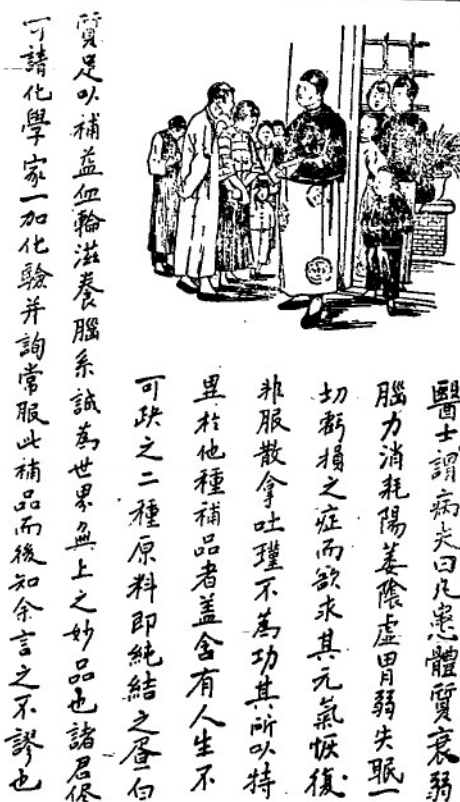 醫士謂病夫曰凡患體質衰弱
腦力消耗陽萎陰虛胃弱失眠一
切虧損之症而欲求其元氣恢復
非服散拿吐瑾不爲功其所以特
異於他種補品者蓋含有人生不
可缺之二種原料即純結之蛋白
質足以補益血輪滋養腦系誠爲世界無上之妙品也諸君儘
可請化學家一加化驗并詢常服此補品而後知余言之不謬也